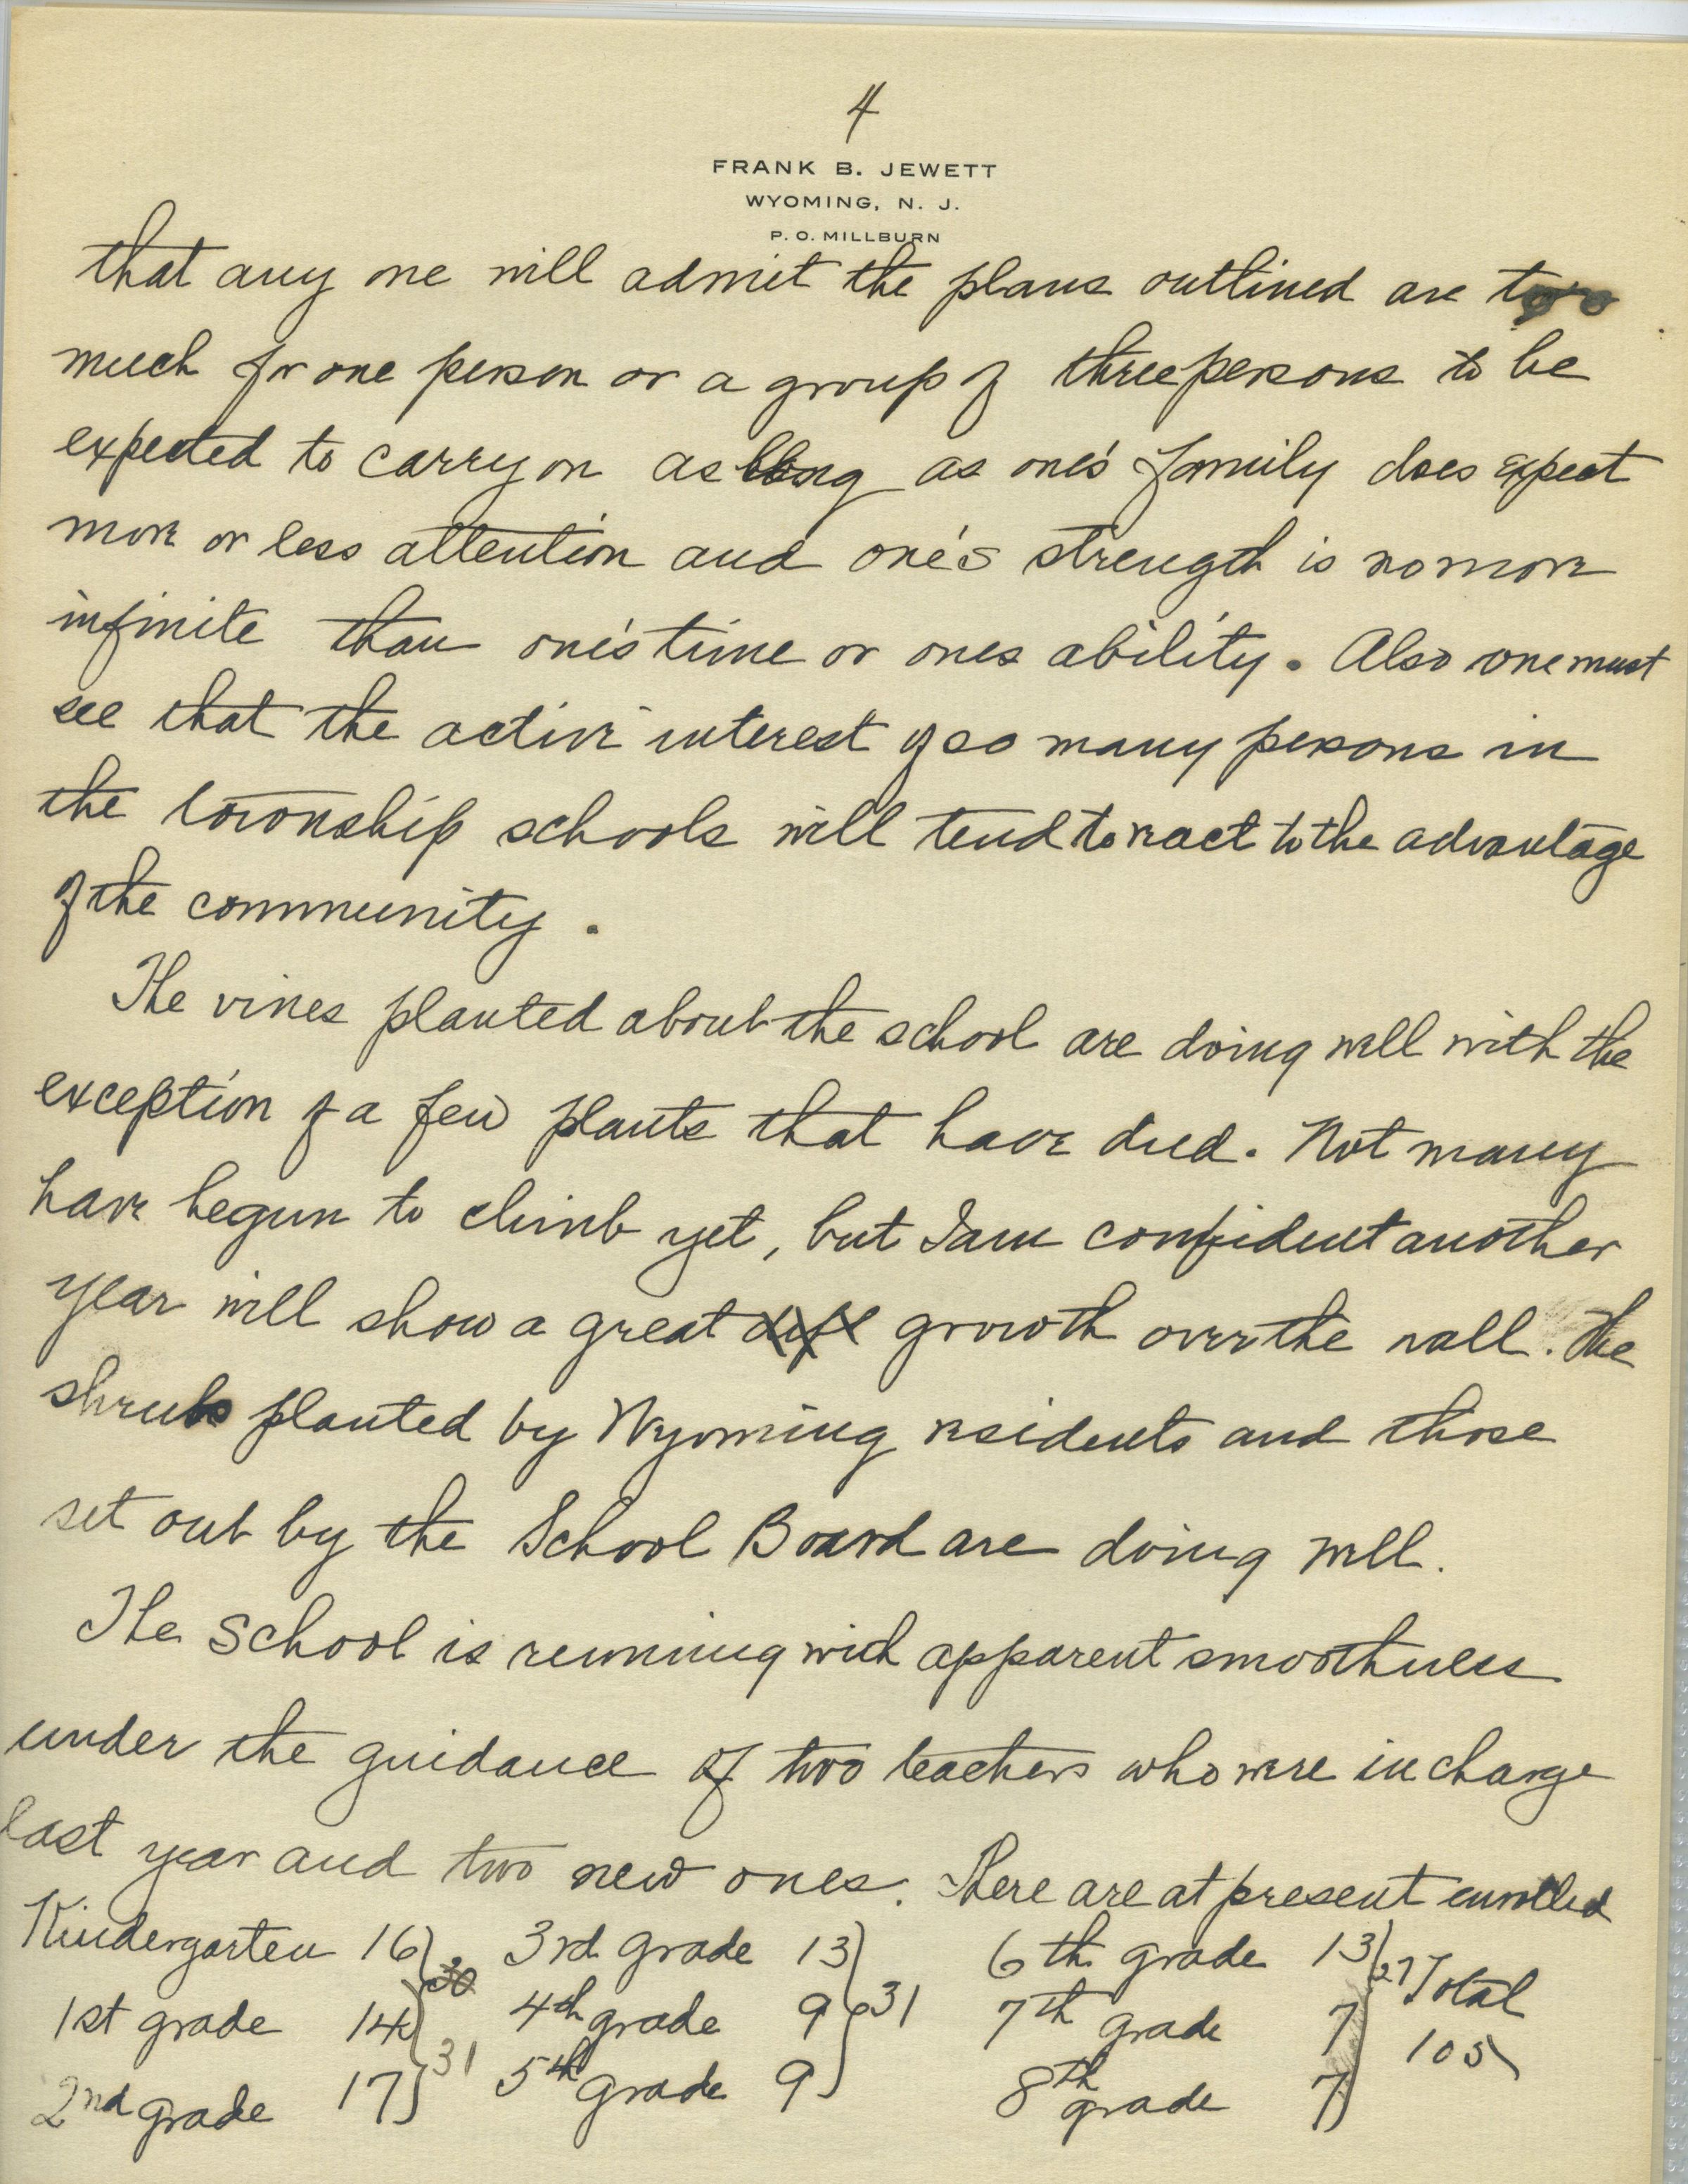 4
FRANK B. JEWETT
WYOMING, N. J.
P. O. MILLBURN
that any one will admit the plans outlined are too
much for one person or a group of three persons to be
expected to carry on as long as one's family does expect
more or less attention and one's strength is no more
infinite than one's time or ones ability. Also one must
see that the active interest of so many persons in
the township schools will tend to react to the advantage
of the community.
The vines planted about the school are doing well with the
exception of a few plants that have died. Not many
have begun to climb yet, but I am confident another
year will show a great growth over the wall. The
shrubs planted by Wyoming residents and those
set out by the School Board are doing well.
The School is running with apparent smoothness
under the guidance of two teachers who were in charge
last year and two new ones. There are at present enrolled
Kindergarten 16 30 3rd grade 13 6th grade 13 27 Total
1st grade 14 4th grade 9 31 7th grade 7 105
2nd grade 17 31 5th grade 9 8th grade 7